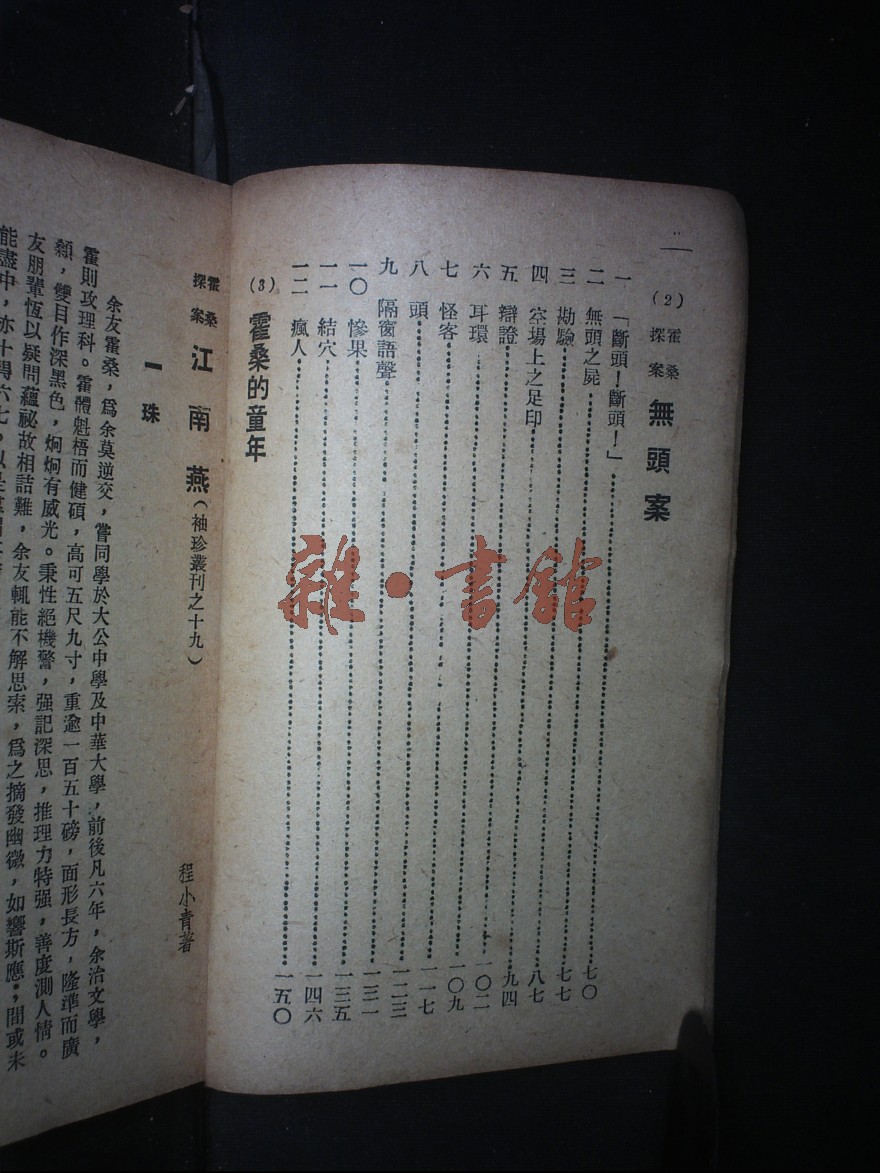 (2) 霍桑探案 無頭案
一 「斷頭!斷頭!」 七〇
二 無頭之屍 七七
三 勘驗 八七
四 空場上之足印 九四
五 辯證 一〇二
六 耳環 一〇九
七 怪客 一一七
八 頭 一二三
九 隔窗語聲 一三一
一〇 慘果 一三五
一一 結穴 一四六
一二 瘋人 一五〇
(3) 霍桑的童年
霍桑探案 江南燕(袖珍叢刊之十九)
程小青著
一 珠
余友霍桑,爲余莫逆交,嘗同學於大公中學及中華大學,前後凡六年,余治文學,
霍則攻理科。霍體魁梧而健碩,高可五尺九寸,重逾一百五十磅,面形長方,隆準而廣
顙,雙目作深黑色,炯炯有威光。秉性絕機警,强記深思,推理力特强,善度測人情。
友朋輩恆以疑問蘊祕故相詰難,余友輒能不解思索,爲之摘發幽微,如響斯應;間或未
能盡中,亦十得六七,以是
雜·書館